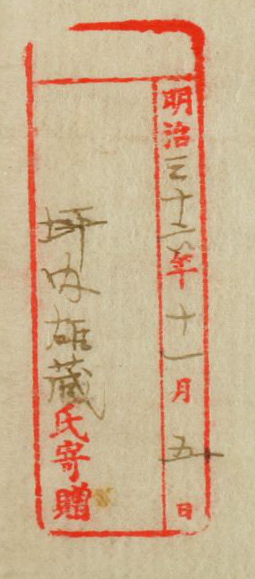 明治三十二年十一月五日
坪内雄蔵氏寄贈